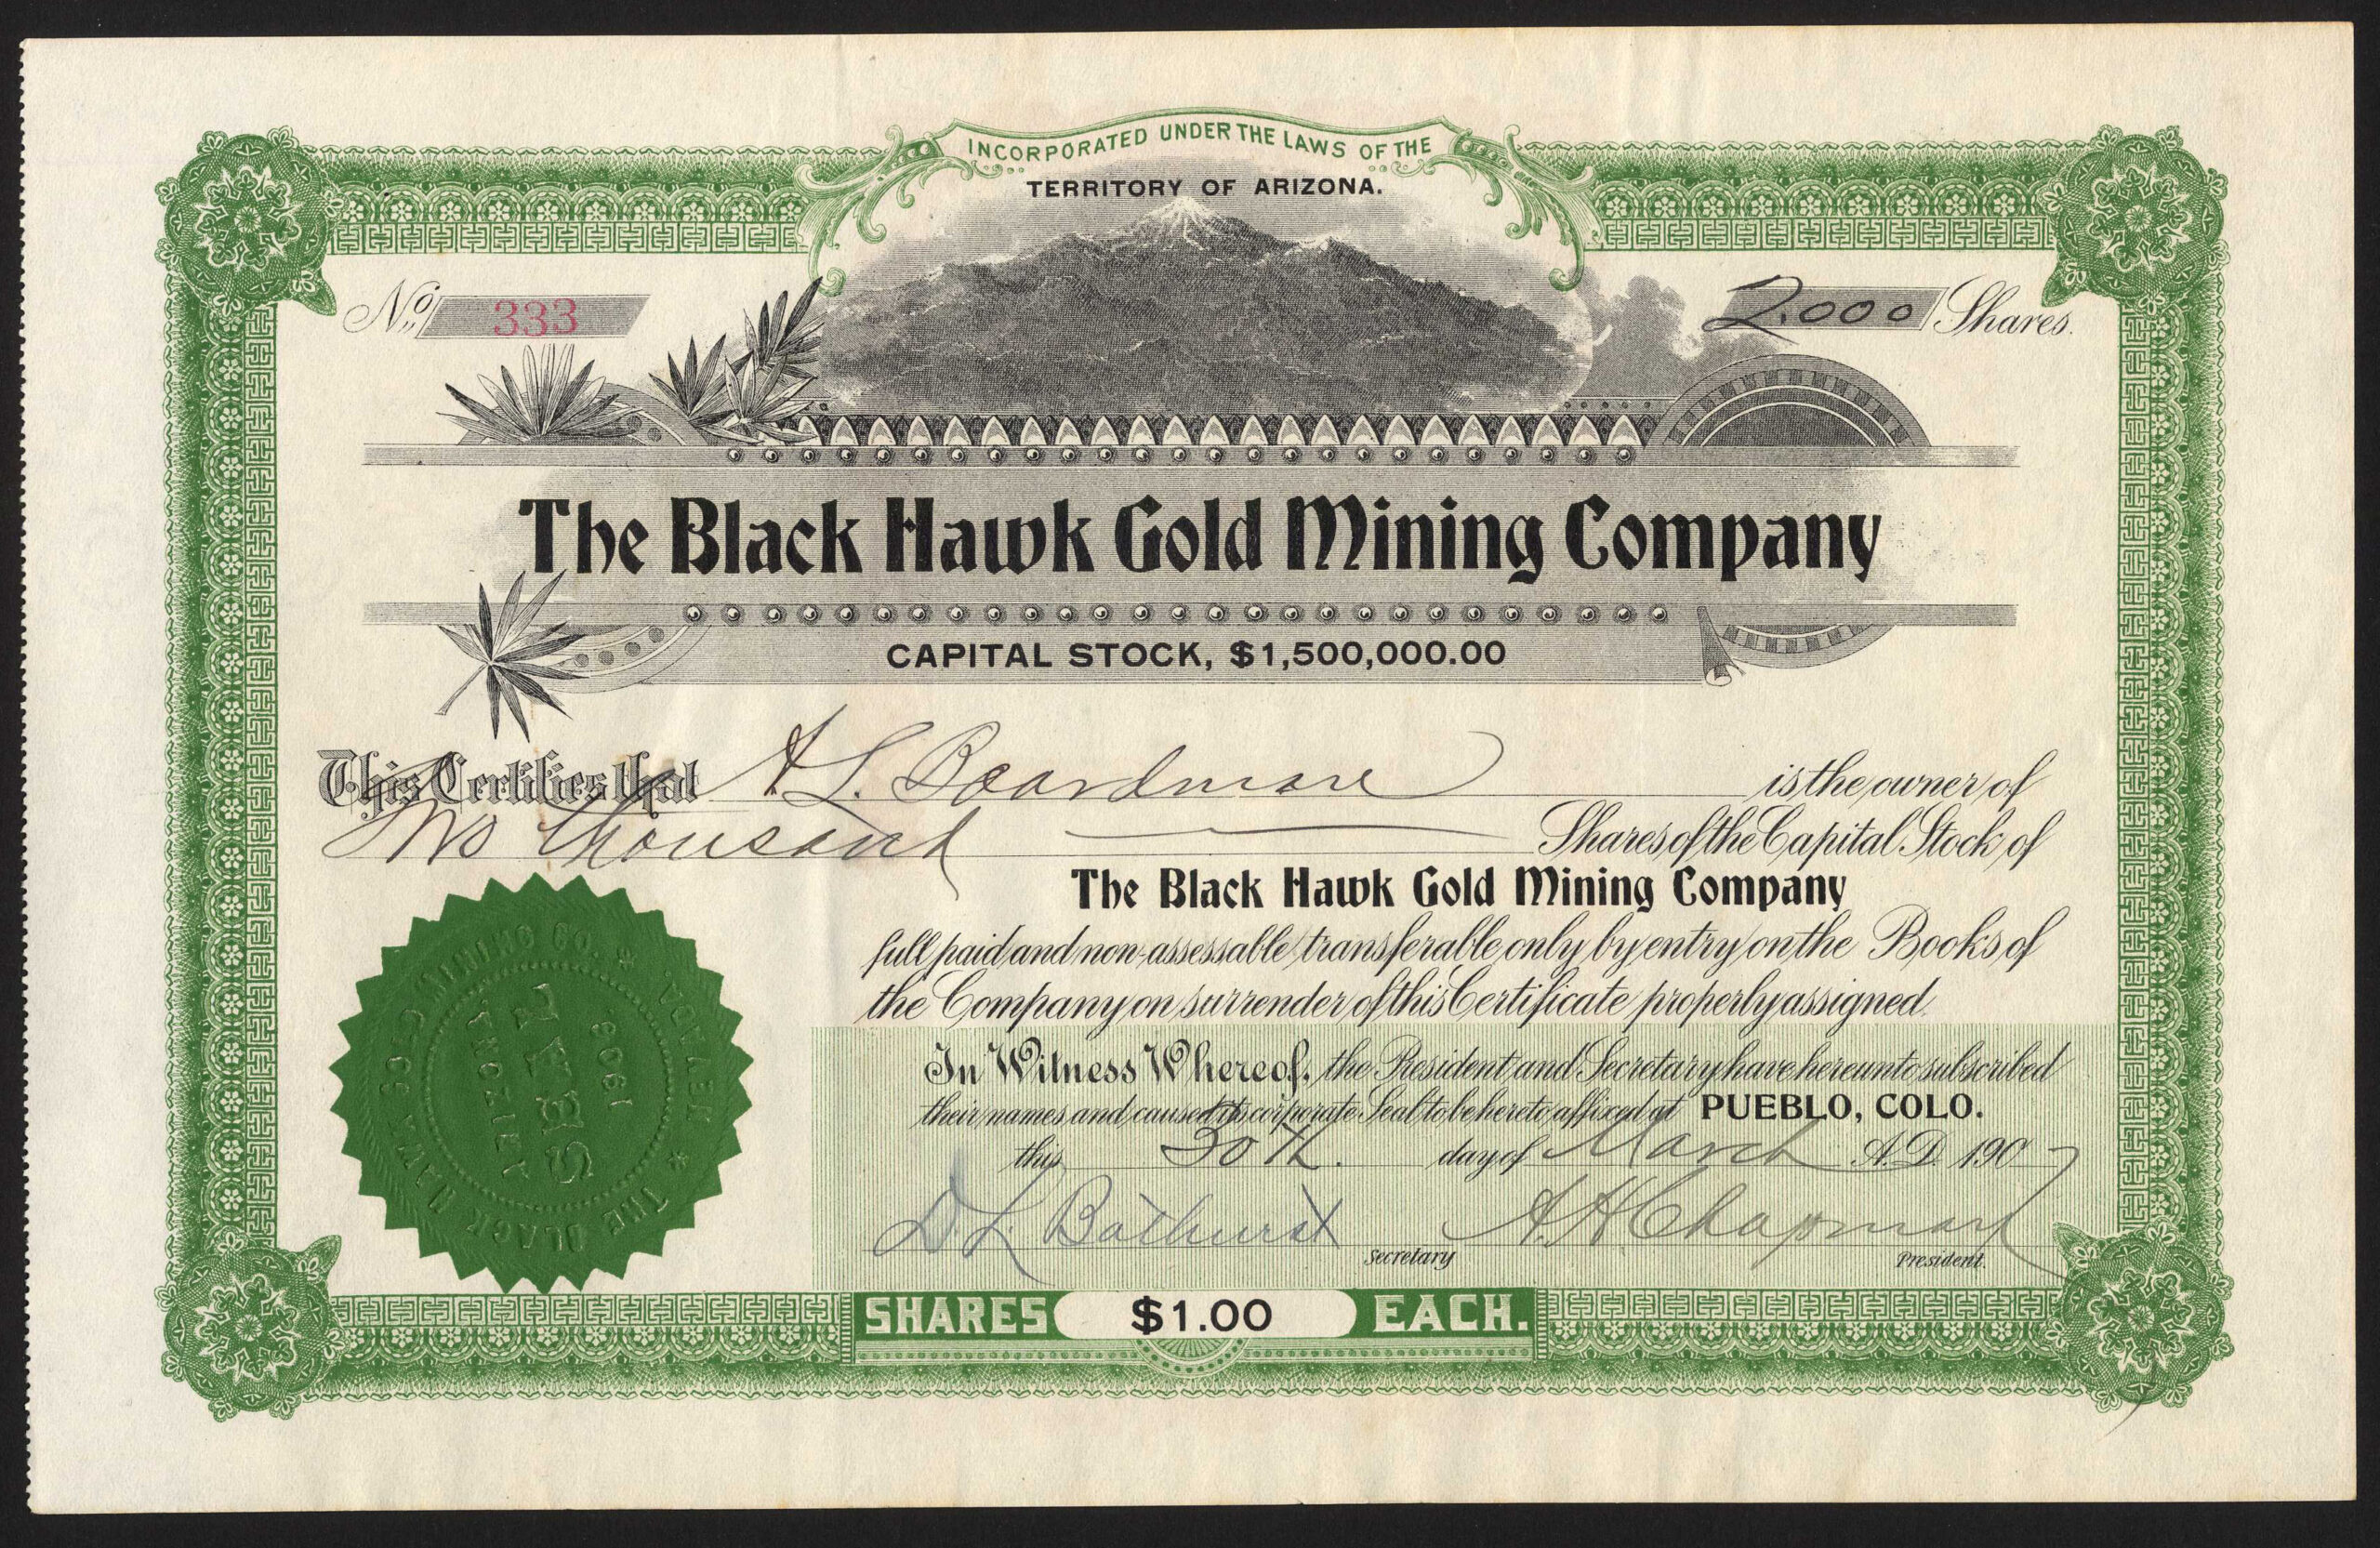 INCORPORATED UNDER THE LAWS OF THE
TERRITORY OF ARIZONA.
No. 333
2.000 Shares.
The Black Hawk Gold Mining Company
CAPITAL STOCK, $1,500,000.00
This Certifies that A L. Boardman is the owner of
Two thousand Shares of the Capital Stock of
The Black Hawk Gold Mining Company
full paid and non-assessable transferable only by entry on the Books of
the Company on surrender of this Certificate properly assigned.
In Witness Whereof, the President and Secretary have hereunto subscribed
their names and caused its corporate Seal to be hereto affixed at PUEBLO, COLO.
this 30th. day of March A.D. 1907
D. L. Bathurst Secretary A. H Chapman President.
THE BLACK HAWK GOLD MINING CO. ★
ARIZONA
SEAL
1903
SHARES $1.00 EACH.